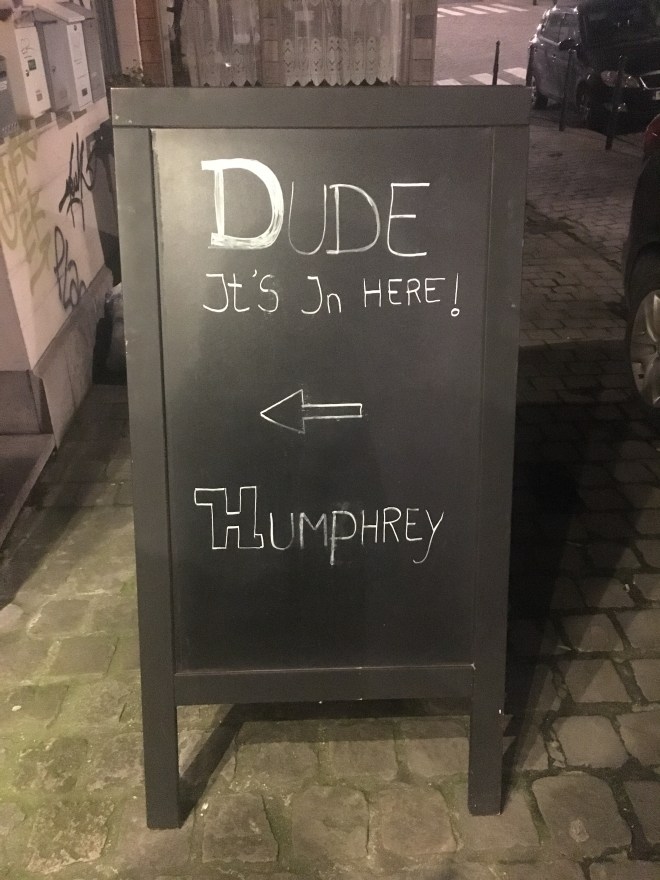 DUDE
It's In HERE!
HUMPHREY